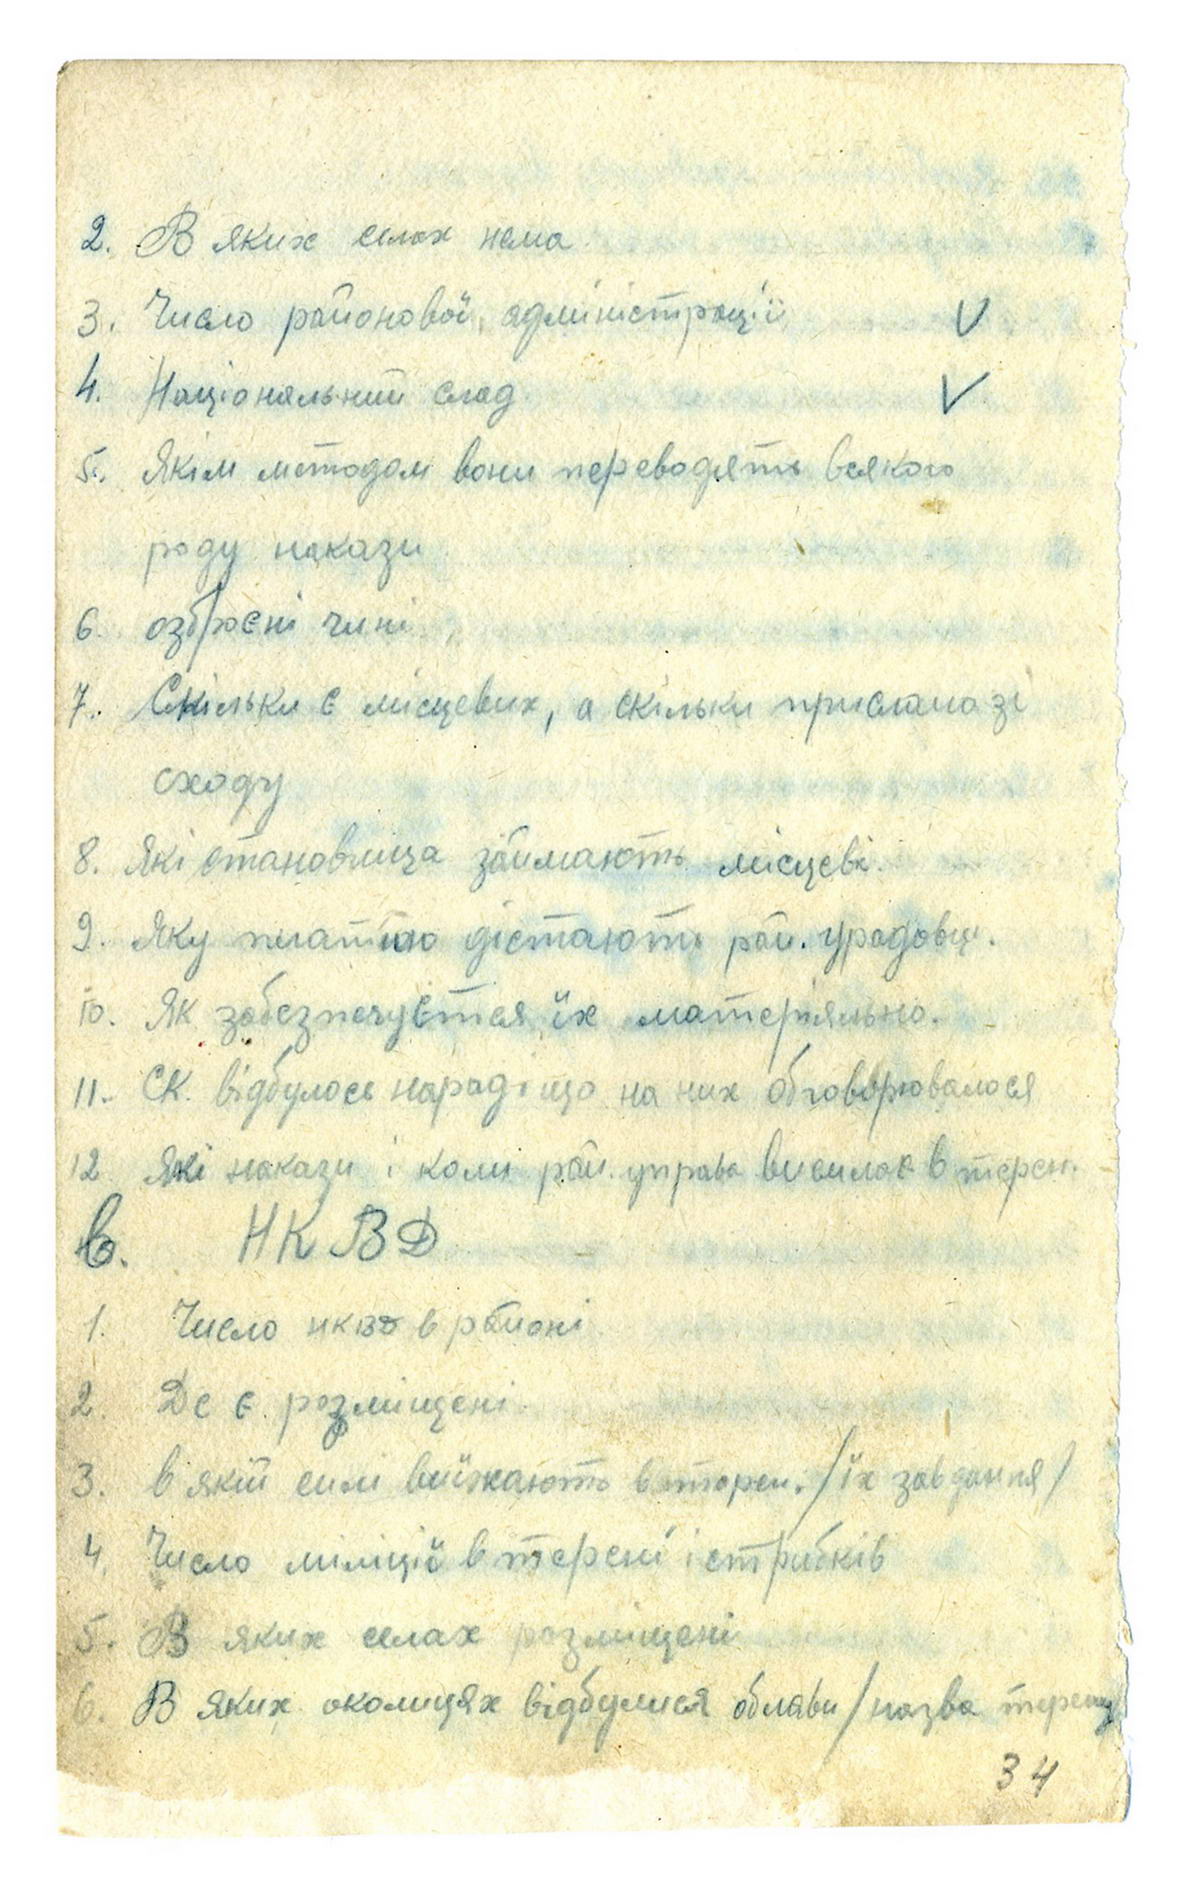 2. В яких селах нема
3. Число районової адміністрації V
4. Національний склад V
5. Якім методом вони переводять всякого
роду накази
6. озброєні чи ні
7. Скільки є місцевих, а скільки прислано зі
сходу
8. Які становища займають місцеві.
9. Яку платню дістають рай. урядовці.
10. Як забезпечується їх матеріяльно.
11. Ск. відбулось нарад і що на них обговорювалося
12 Які накази і коли рай. управа висилає в терен.
в. НКВД
1. Число нквд в районі
2. Де є розміщені
3. в якій силі виїжають в терен. /їх завдання/
4. Число міліції в терені і стрибків
5. В яких селах розміщені
6. В яких околицях відбулися облави /назва терену
34